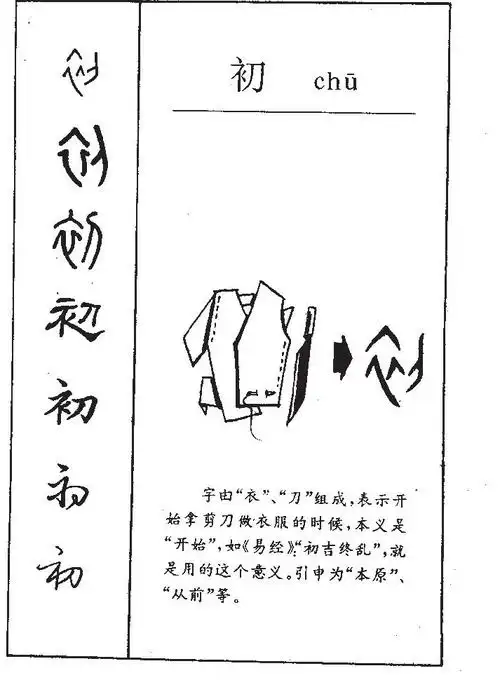 初 chū
字由“衣”、“刀”组成，表示开
始拿剪刀做衣服的时候，本义是
“开始”，如《易经》“初吉终乱”，就
是用的这个意义。引申为“本原”、
“从前”等。
初
初
初
初
初
初
初